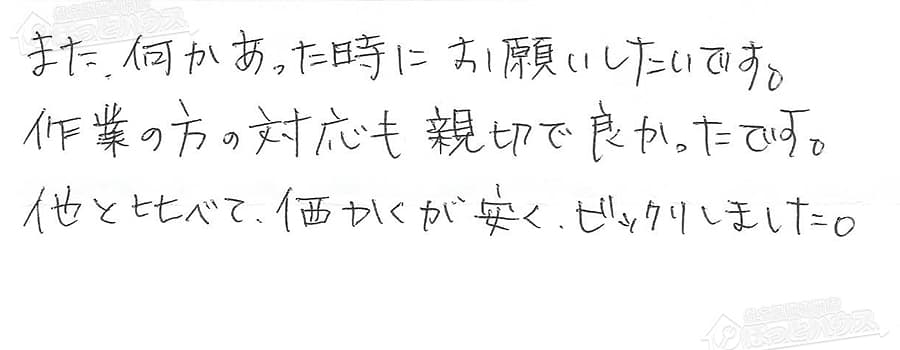 また、何かあった時にお願いしたいです。
作業の方の対応も親切で良かったです。
他と比べて、価かくが安く、ビックリしました。